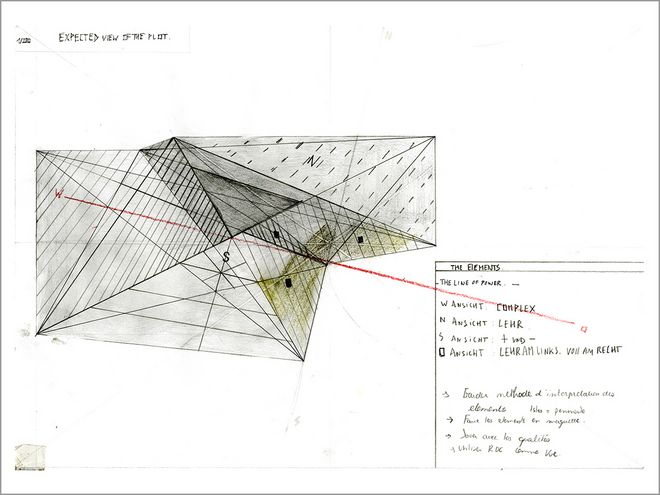 1/200
EXPECTED VIEW OF THE PLOT.
N
W
S
O
THE ELEMENTS
-THE LINE OF POWER. -
W ANSICHT : COMPLEX
N ANSICHT : LEHR
S ANSICHT : + UND -
O ANSICHT : LEHR AM LINKS. VOLL AM RECHT
→ méthode d'interprétation des
éléments
→ Faire les éléments en maquette.
→ Jouer avec les qualités
→ Utiliser RDC comme